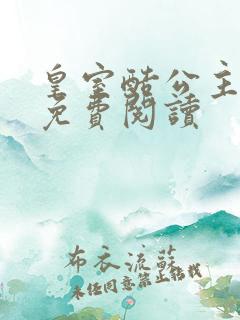 皇室酷公主
免費閱讀
布衣流蘇
未任同意禁止轉載